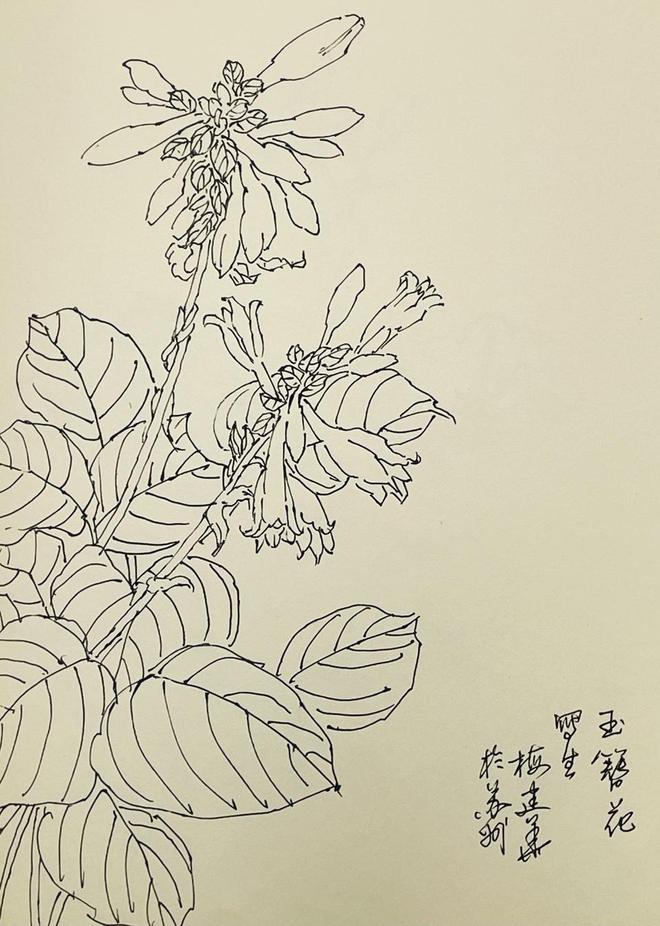 玉簪花
写生
梅建华
於苏州